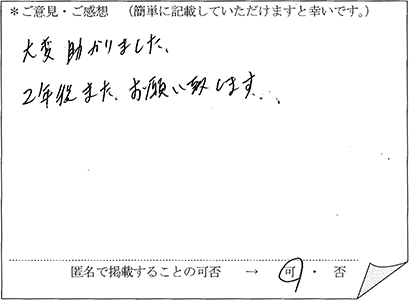 ＊ご意見・ご感想　（簡単に記載していただけますと幸いです。）
大変助かりました、
2年後また、お願い致します...
匿名で掲載することの可否　→　可・否